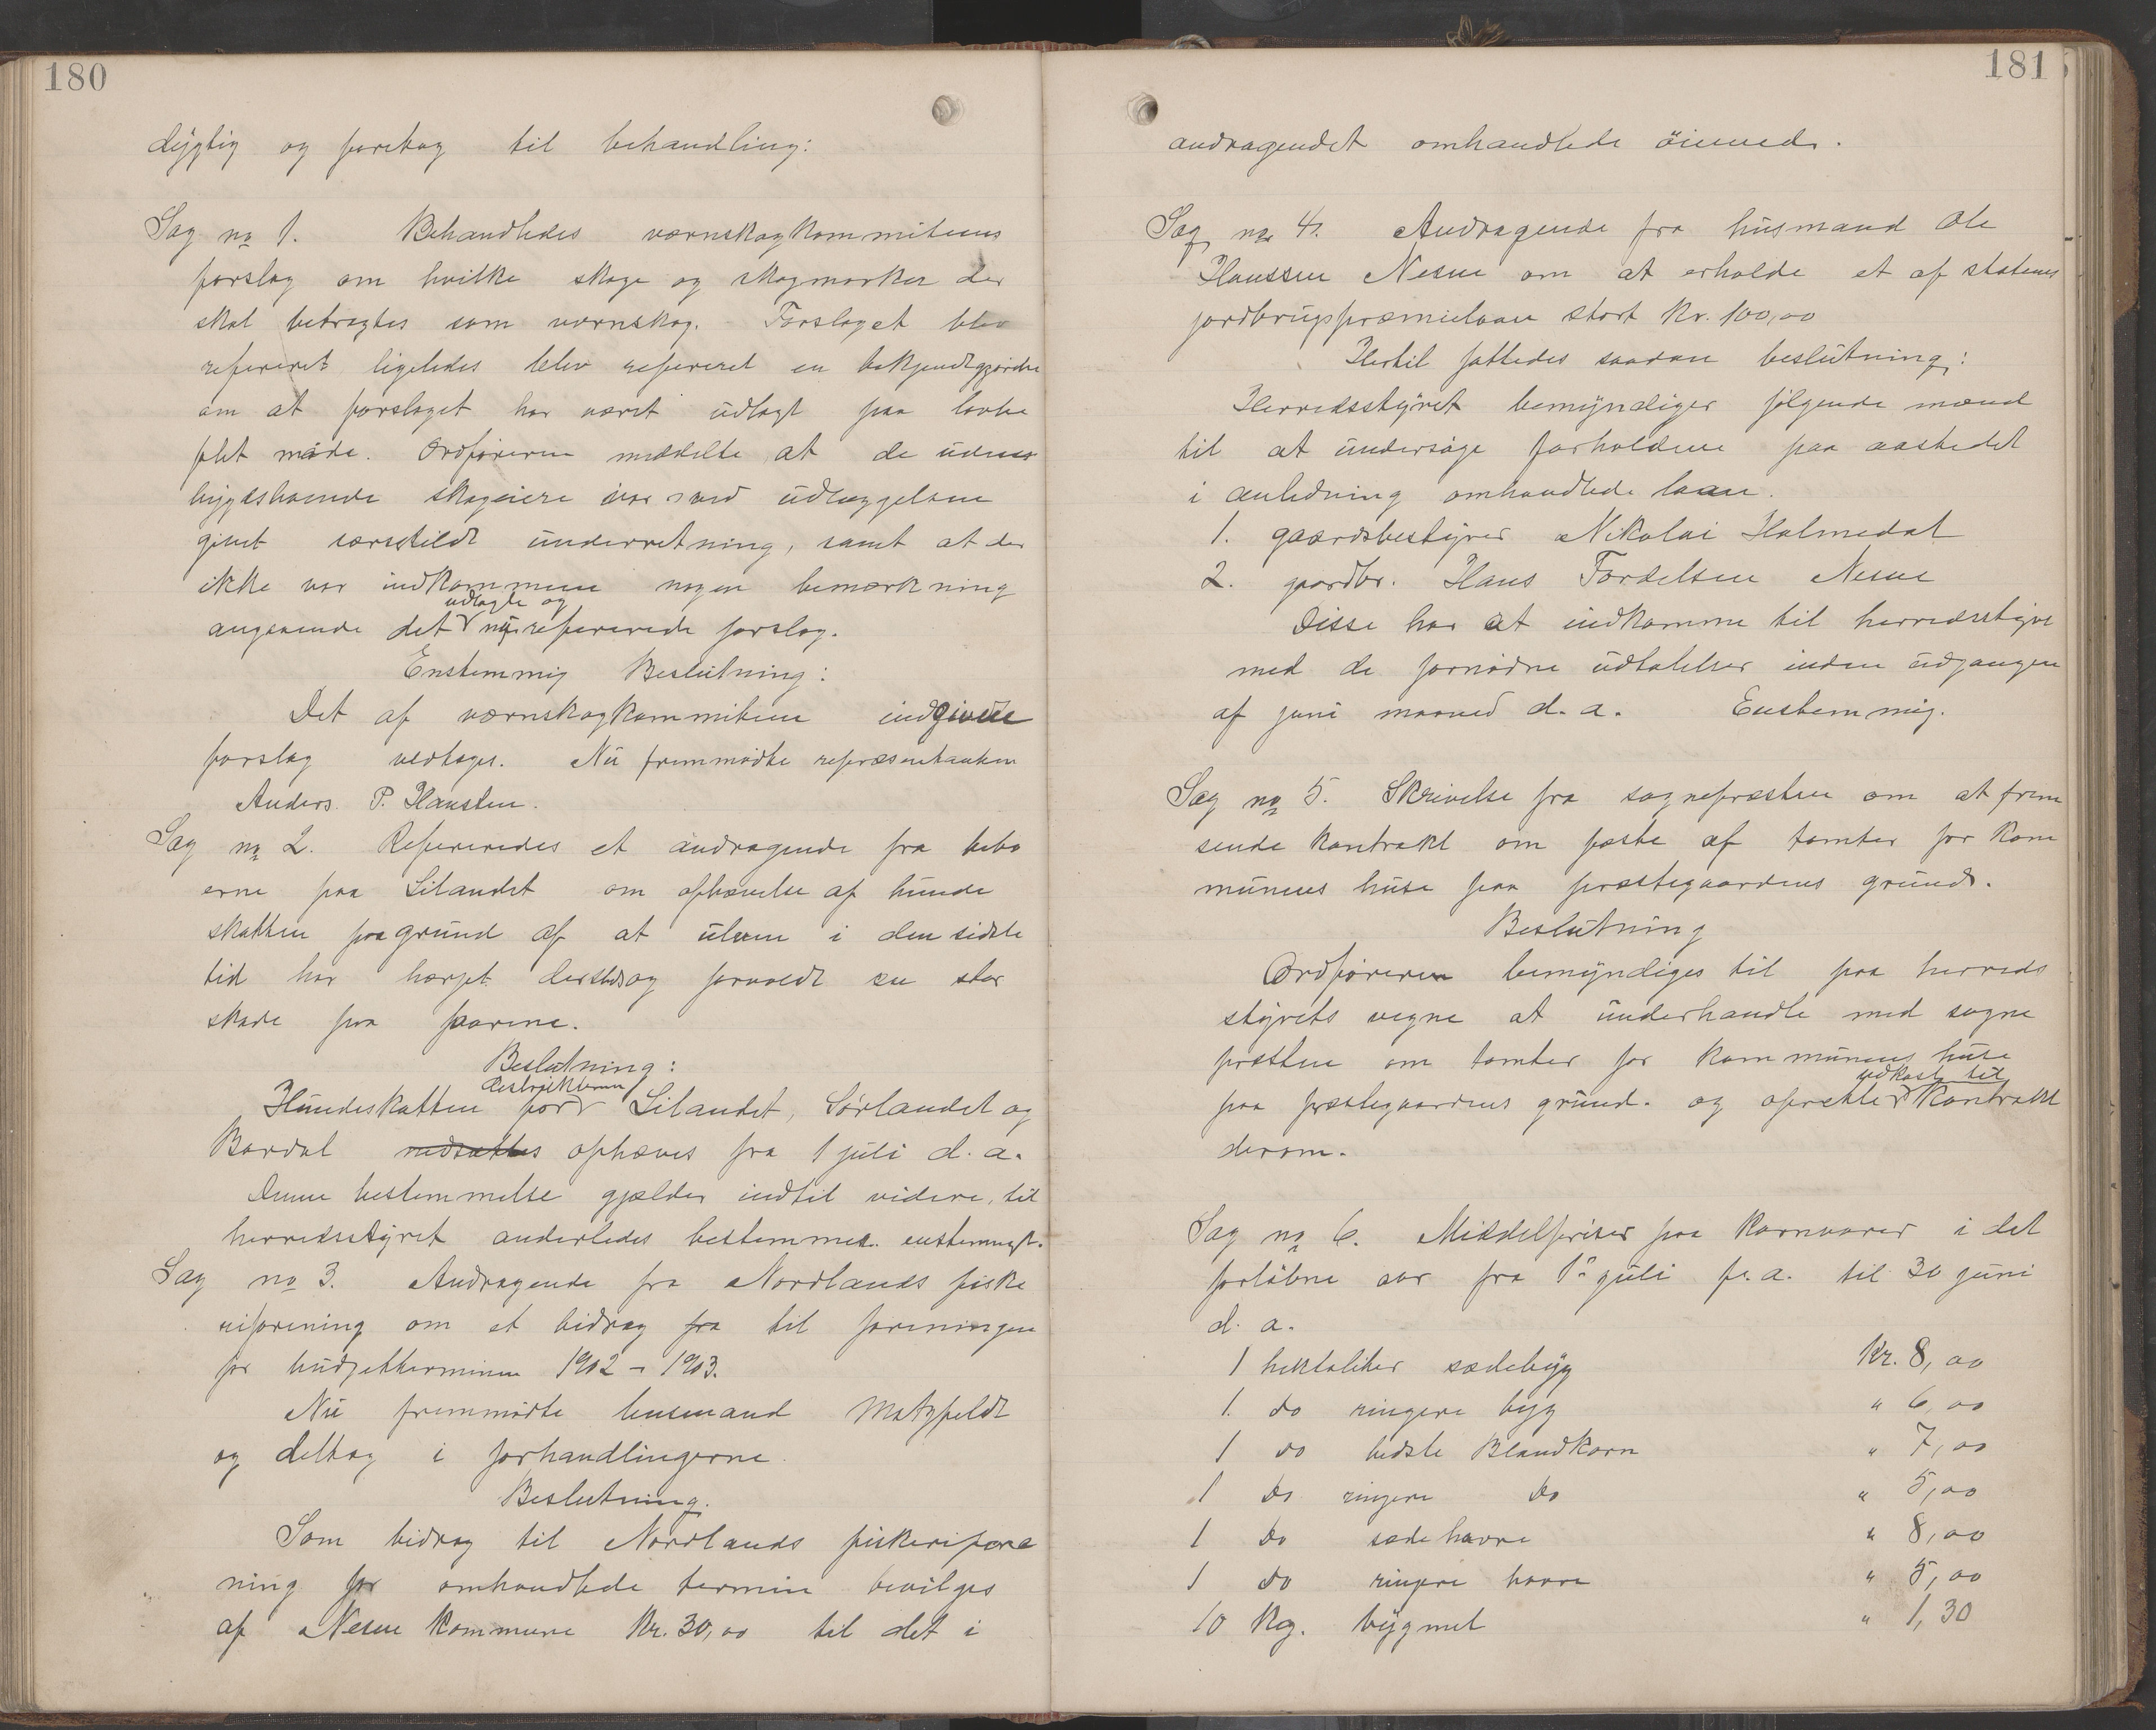 180
dygtig og foretog til behandling:
Sag no 1. Behandledes værnskogkommiteens
forslag om hvilke skoge og skogmarker der
skal betragtes som værnskog. Forslaget blev
refereret ligeledes blev refereret en bekjendtgjørelse
om at forslaget har været udlagt paa lovbe
falt måde. Ordføreren meddelte at de udenbygdsboende skogeiere var ved udlæggelsen
givet særskildt underretning, samt at der
ikke var indkommen nogen bemærkning
udlagte og
angaaende det nu refererede forslag.
Enstemmig Beslutning:
Det af værnskogkommiteen indgivne
forslag vedtages. Nu fremmødte repræsentanten
Anders P. Hansen.
Sag no 2. Refereredes et andragende fra bebo
erne paa Lilandet om ophævelse af hunde
skatten paa grund af at ulven i den sidste
tid har herjet dersteds og forvoldt en stor
skade paa faarene.
Beslutning:
destrikterne
Hundeskatten for Lilandet, Sørlandet og
Bardal nedsættes ophæves fra 1 juli d. a.
Denne bestemmelse gjælder indtil videre, til
herredsstyret anderledes bestemmer. enstemmigt.
Sag no 3. Andragende fra Nordlands fiske
riforening om et bidrag fra til foreningen
for budgetterminen 1902 - 1903.
Nu fremmødte lensmand Motzfeldt
og deltog i forhandlingerne.
Beslutning.
Som bidrag til Nordlands fiskerifore
ning for omhandlede termin bevilges
af Nesne kommune Kr. 30,00 til det i
181
andragendet omhandlede öiemed.
Sag no 4. Andragende fra husmand Ole
Hanssen Nesne om at erholde et af statens
jordbrugspræmielaan stort Kr. 100,00
Hertil fattedes saadan beslutning:
Herredsstyret bemyndiger følgende mænd
til at undersøge forholdene paa aastedet
i anledning omhandlede laan.
1. gaardsbestyrer Nikolai Holmedal
2. gaardbr. Hans Tordelsen Nesne
Disse har at indkomme til herredsstyre
med de fornødne udtalelser inden udgangen
af juni maaned d. a. Enstemmig.
Sag no 5. Skrivelse fra sognepræsten om at frem
sende kontrakt om fæste af tomter for kom
munens huse paa præstegaardens grund.
Beslutning
Ordføreren bemyndiges til paa herreds
styrets vegne at underhandle med sogne
præsten om tomter for kommunens huse
udkast til
paa præstegaardens grund. og oprette kontrakt
derom.
Sag no 6. Middelpriser paa kornvarer i det
forløbne aar fra 1ste juli f. a. til 30 juni
d. a.
1 hektoliter sædebyg Kr. 8,00
1. do ringere byg " 6,00
1 do bedste Blandkorn " 7,00
1 do ringere do " 5,00
1 do sædehavre " 8,00
1 do ringere havre " 5,00
10 Kg. bygmel " 1,30